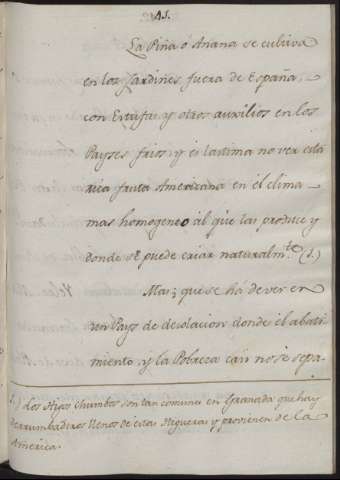 41.
La Piña ó Anana se cultiva
en los Jardines fuera de España,
con Estufas y otros auxilios en los
Payses frios, y es lastima no ver esta
rica fruta Americana en el clima
mas homogeneo al que las produce y
donde se puede criar naturalm.te (1.)
Mas; que se há de ver en
un Pays de desolacion donde el abati-
miento y la Pobreza casi no se sepa-
1.) Los Higos Chumbos son tan comunes en Granada que hay
derrumbaderos llenos de estas Higueras y provienen de la
America.